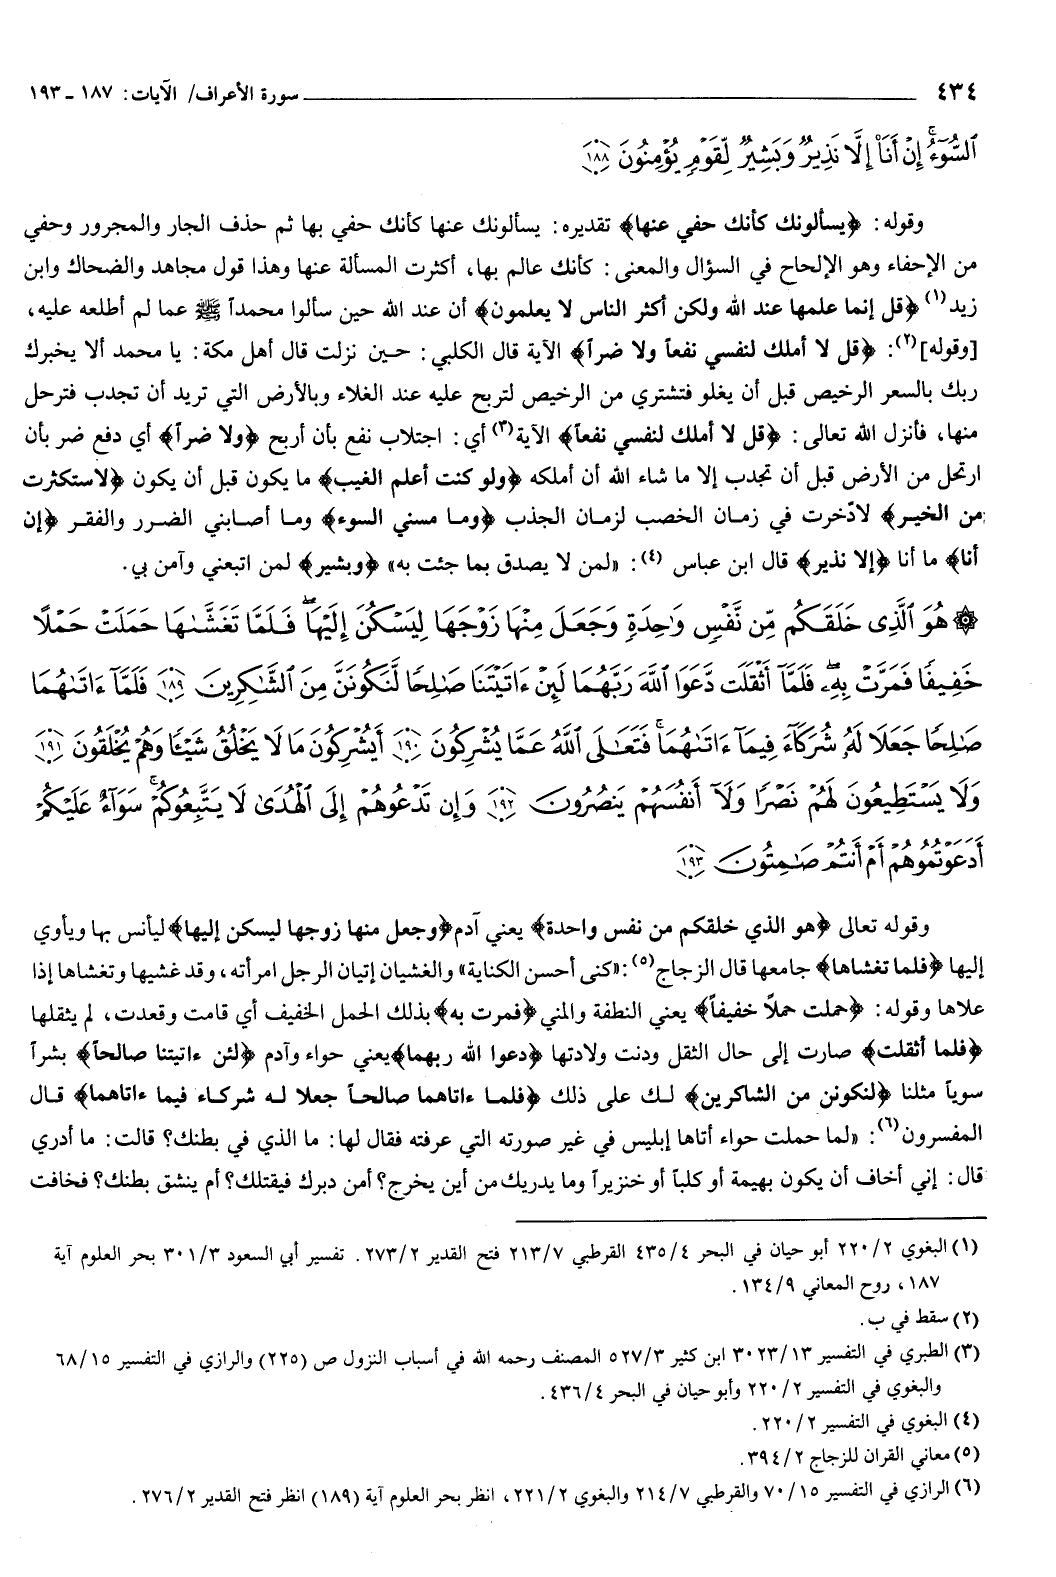 ٤٣٤ ــــــــ سورة الأعراف/ الآيات: ١٨٧ ـ ١٩٣
ٱلسُّوٓءُ ۚ إِنْ أَنَا۠ إِلَّا نَذِيرٌ وَبَشِيرٌ لِّقَوْمٍ يُؤْمِنُونَ ﴿١٨٨﴾
وقوله: ﴿يسألونك كأنك حفي عنها﴾ تقديره: يسألونك عنها كأنك حفي بها ثم حذف الجار والمجرور وحفي
من الإحفاء وهو الإلحاح في السؤال والمعنى: كأنك عالم بها، أكثرت المسألة عنها وهذا قول مجاهد والضحاك وابن
زيد(١) ﴿قل إنما علمها عند الله ولكن أكثر الناس لا يعلمون﴾ أن عند الله حين سألوا محمداً ﷺ عما لم أطلعه عليه،
[وقوله](٢): ﴿قل لا أملك لنفسي نفعاً ولا ضراً﴾ الآية قال الكلبي: حين نزلت قال أهل مكة: يا محمد ألا يخبرك
ربك بالسعر الرخيص قبل أن يغلو فتشتري من الرخيص لتربح عليه عند الغلاء وبالأرض التي تريد أن تجدب فترحل
منها، فأنزل الله تعالى: ﴿قل لا أملك لنفسي نفعاً﴾ الآية(٣) أي: اجتلاب نفع بأن أربح ﴿ولا ضراً﴾ أي دفع ضر بأن
ارتحل من الأرض قبل أن تجدب إلا ما شاء الله أن أملكه ﴿ولو كنت أعلم الغيب﴾ ما يكون قبل أن يكون ﴿لاستكثرت
من الخير﴾ لادّخرت في زمان الخصب لزمان الجذب ﴿وما مسني السوء﴾ وما أصابني الضرر والفقر ﴿إن
أنا﴾ ما أنا ﴿إلا نذير﴾ قال ابن عباس (٤): «لمن لا يصدق بما جئت به» ﴿وبشير﴾ لمن اتبعني وآمن بي.
۞ هُوَ ٱلَّذِى خَلَقَكُم مِّن نَّفْسٍ وَٰحِدَةٍ وَجَعَلَ مِنْهَا زَوْجَهَا لِيَسْكُنَ إِلَيْهَا ۖ فَلَمَّا تَغَشَّىٰهَا حَمَلَتْ حَمْلًا
خَفِيفًا فَمَرَّتْ بِهِۦ ۖ فَلَمَّآ أَثْقَلَت دَّعَوَا ٱللَّهَ رَبَّهُمَا لَئِنْ ءَاتَيْتَنَا صَٰلِحًا لَّنَكُونَنَّ مِنَ ٱلشَّٰكِرِينَ ﴿١٨٩﴾ فَلَمَّآ ءَاتَىٰهُمَا
صَٰلِحًا جَعَلَا لَهُۥ شُرَكَآءَ فِيمَآ ءَاتَىٰهُمَا ۚ فَتَعَٰلَى ٱللَّهُ عَمَّا يُشْرِكُونَ ﴿١٩٠﴾ أَيُشْرِكُونَ مَا لَا يَخْلُقُ شَيْـًٔا وَهُمْ يُخْلَقُونَ ﴿١٩١﴾
وَلَا يَسْتَطِيعُونَ لَهُمْ نَصْرًا وَلَآ أَنفُسَهُمْ يَنصُرُونَ ﴿١٩٢﴾ وَإِن تَدْعُوهُمْ إِلَى ٱلْهُدَىٰ لَا يَتَّبِعُوكُمْ ۚ سَوَآءٌ عَلَيْكُمْ
أَدَعَوْتُمُوهُمْ أَمْ أَنتُمْ صَٰمِتُونَ ﴿١٩٣﴾
وقوله تعالى ﴿هو الذي خلقكم من نفس واحدة﴾ يعني آدم ﴿وجعل منها زوجها ليسكن إليها﴾ ليأنس بها ويأوي
إليها ﴿فلما تغشاها﴾ جامعها قال الزجاج(٥): «كنى أحسن الكناية» والغشيان إتيان الرجل امرأته، وقد غشيها وتغشاها إذا
علاها وقوله: ﴿حملت حملاً خفيفاً﴾ يعني النطفة والمني ﴿فمرت به﴾ بذلك الحمل الخفيف أي قامت وقعدت، لم يثقلها
﴿فلما أثقلت﴾ صارت إلى حال الثقل ودنت ولادتها ﴿دعوا الله ربهما﴾ يعني حواء وآدم ﴿لئن ءاتيتنا صالحاً﴾ بشراً
سوياً مثلنا ﴿لنكونن من الشاكرين﴾ لك على ذلك ﴿فلما ءاتاهما صالحاً جعلا له شركاء فيما ءاتاهما﴾ قال
المفسرون(٦): «لما حملت حواء أتاها إبليس في غير صورته التي عرفته فقال لها: ما الذي في بطنك؟ قالت: ما أدري
قال: إني أخاف أن يكون بهيمة أو كلباً أو خنزيراً وما يدريك من أين يخرج؟ أمن دبرك فيقتلك؟ أم ينشق بطنك؟ فخافت
(١) البغوي ٢٢٠/٢ أبو حيان في البحر ٤٣٥/٤ القرطبي ٢١٣/٧ فتح القدير ٢٧٣/٢. تفسير أبي السعود ٣٠١/٣ بحر العلوم آية
١٨٧، روح المعاني ١٣٤/٩.
(٢) سقط في ب.
(٣) الطبري في التفسير ٣٠٢٣/١٣ ابن كثير ٥٢٧/٣ المصنف رحمه الله في أسباب النزول ص (٢٢٥) والرازي في التفسير ٦٨/١٥
والبغوي في التفسير ٢٢٠/٢ وأبو حيان في البحر ٤٣٦/٤.
(٤) البغوي في التفسير ٢٢٠/٢.
(٥) معاني القران للزجاج ٣٩٤/٢.
(٦) الرازي في التفسير ٧٠/١٥ والقرطبي ٢١٤/٧ والبغوي ٢٢١/٢، انظر بحر العلوم آية (١٨٩) انظر فتح القدير ٢٧٦/٢.